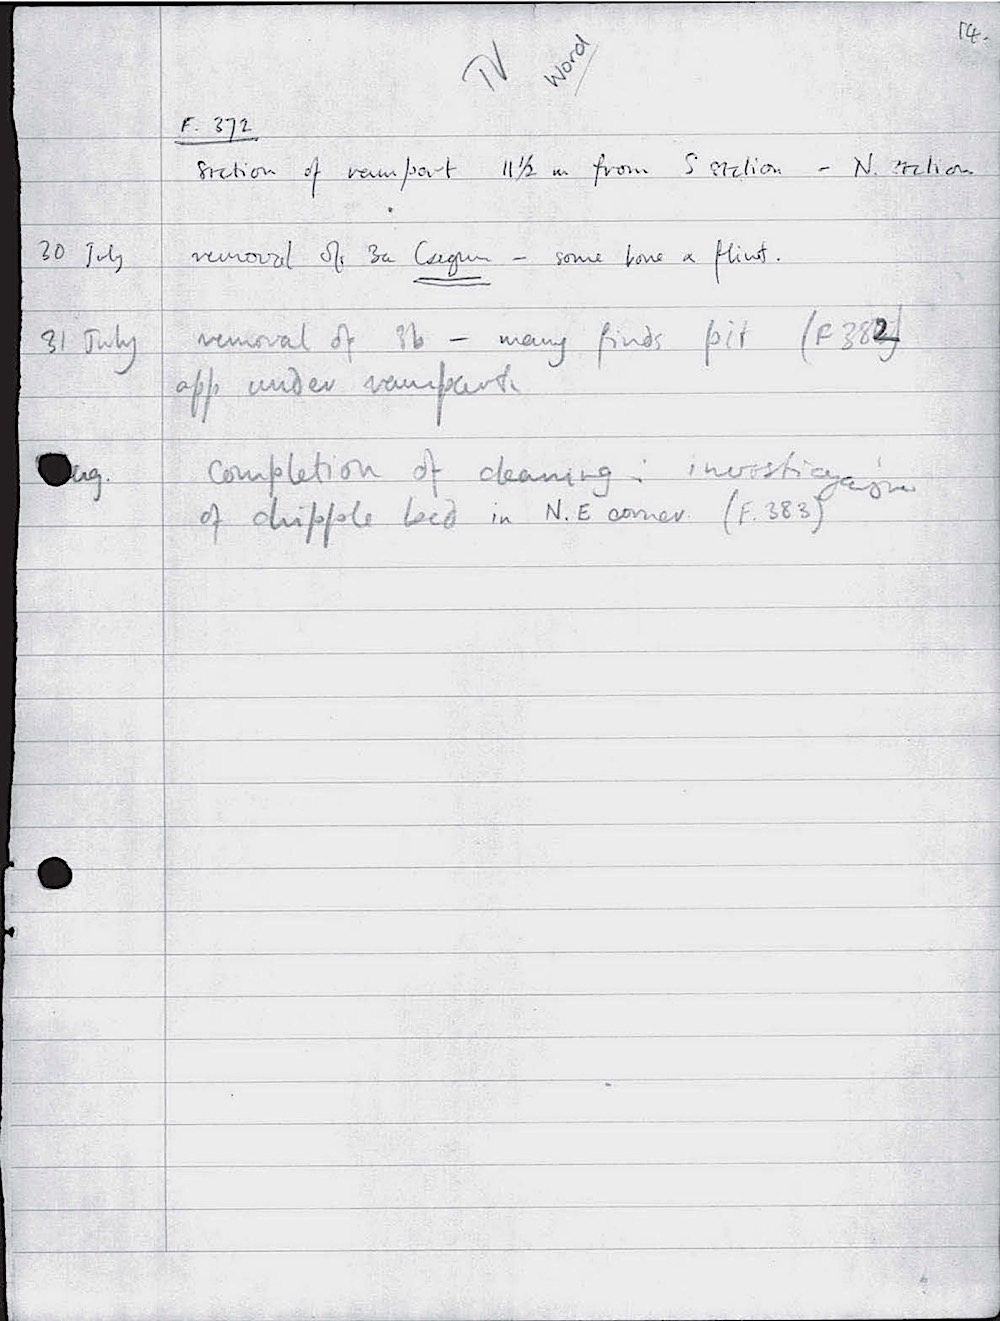 14.
TV Word
F. 372
Section of rampart 11½ m from S section - N. section
30 July removal of 3a - some bone & flint.
31 July removal of 3b - many finds pit (F 382)
app under rampart
Aug. completion of cleaning : investigation
of chipple bed in N.E corner. (F. 383)